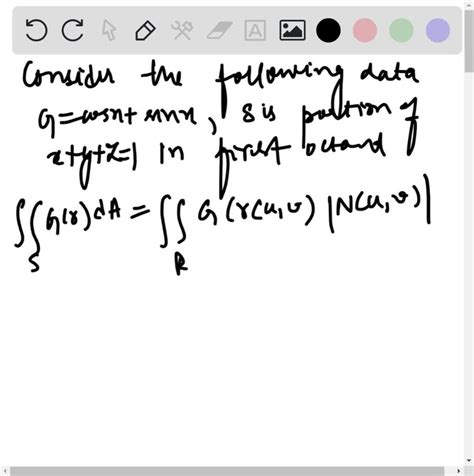 Consider the following data
G=cosx+sinx, S is portion of
x+y+z=1 in first octand
∬_S G(r) dA = ∬_R G(r(u,v) |N(u,v)|